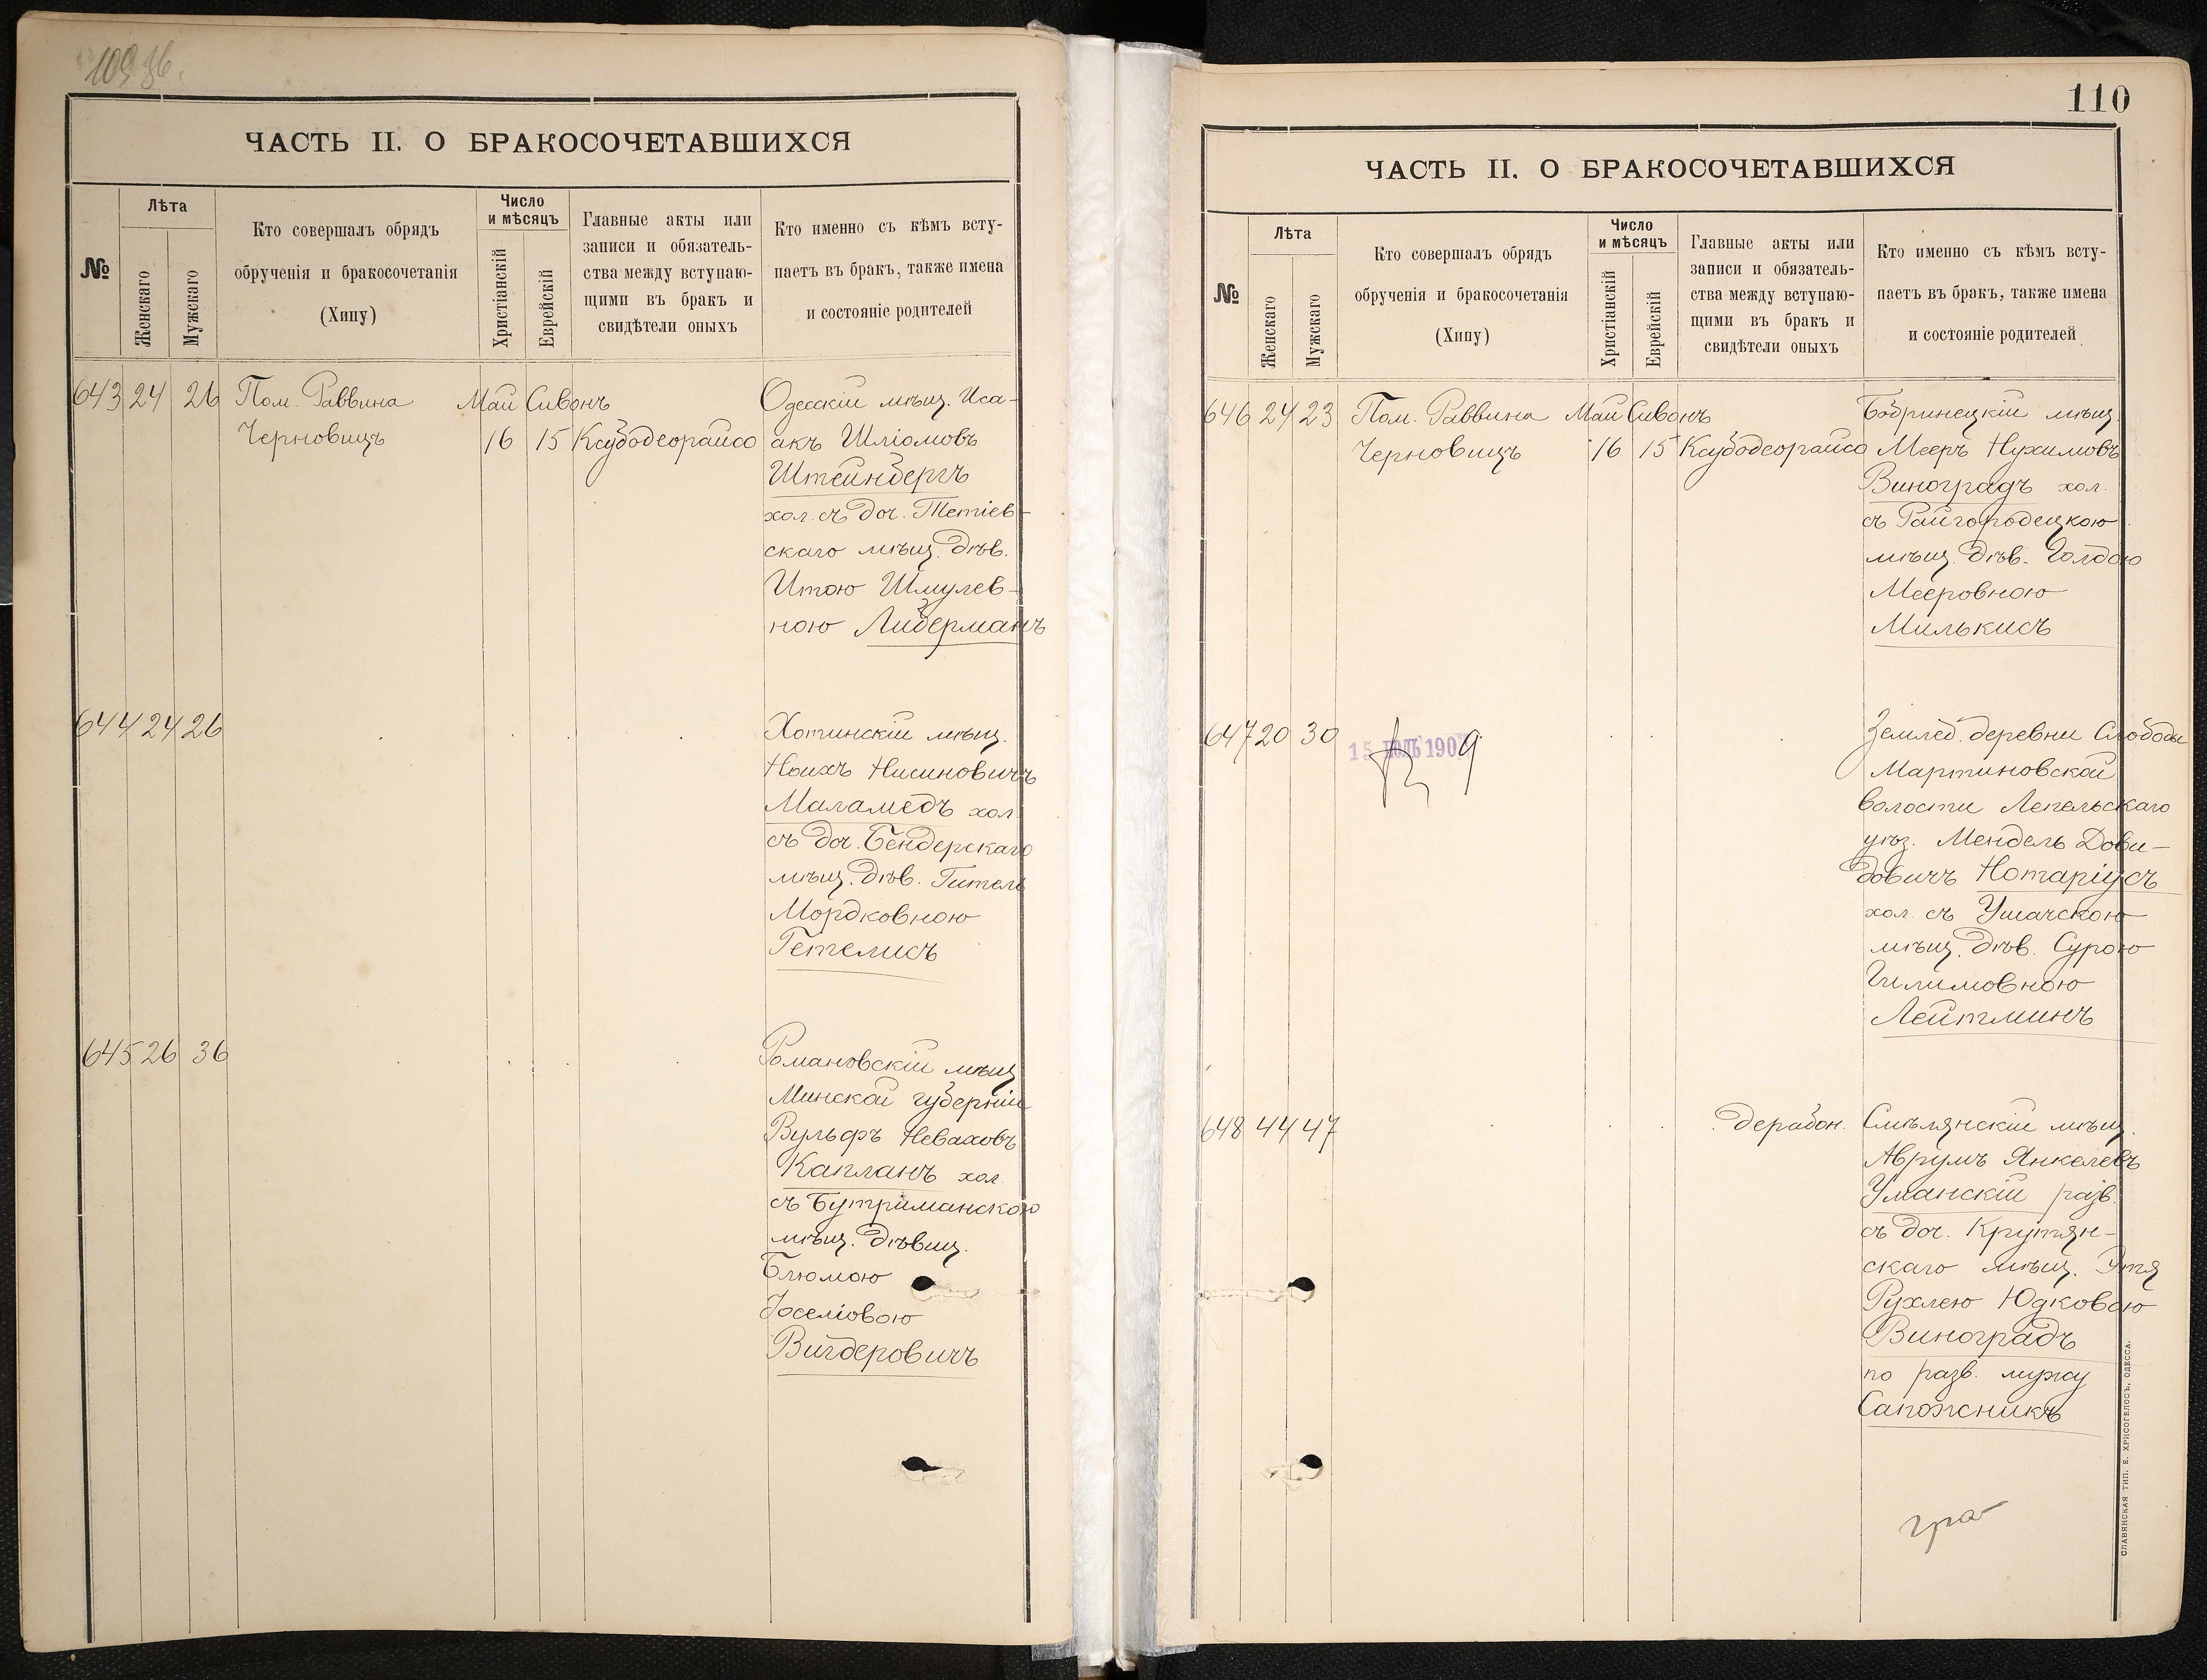 ЧАСТЬ II. О БРАКОСОЧЕТАВШИХСЯ
№
Лѣта
Женскаго
Мужскаго
Кто совершалъ обрядъ
обрученія и бракосочетанія
(Хипу)
Число
и мѣсяцъ
Христіанскій
Еврейскій
Главные акты или
записи и обязатель-
ства между вступаю-
щими въ бракъ и
свидѣтели оныхъ
Кто именно съ кѣмъ всту-
паетъ въ бракъ, также имена
и состояніе родителей
643 24 26 Пом. Раввина Май Сивонъ Одесскій мѣщ. Иса-
Черновицъ 16 15 Ксубодеорайсо акъ Шліомовъ
Штейнбергъ
хол. съ доч. Тетіев-
скаго мѣщ. дѣв.
Итою Шмулев-
ною Либерманъ
644 24 26 Хотинскій мѣщ.
Ноихъ Нисиновичъ
Маламедъ хол.
съ доч. Бендерскаго
мѣщ. дѣв. Гитель
Мордковною
Гетелисъ
645 26 36 Романовскій мѣщ.
Минской губерніи
Вульфъ Неваховъ
Капланъ хол.
съ Бутриманскою
мѣщ. дѣвиц.
Блюмою
Іоселіовою
Вигдеровичъ
110
ЧАСТЬ II. О БРАКОСОЧЕТАВШИХСЯ
№
Лѣта
Женскаго
Мужскаго
Кто совершалъ обрядъ
обрученія и бракосочетанія
(Хипу)
Число
и мѣсяцъ
Христіанскій
Еврейскій
Главные акты или
записи и обязатель-
ства между вступаю-
щими въ бракъ и
свидѣтели оныхъ
Кто именно съ кѣмъ всту-
паетъ въ бракъ, также имена
и состояніе родителей
646 24 23 Пом. Раввина Май Сивонъ Бобринецкій мѣщ.
Черновицъ 16 15 Ксубодеорайсо Мееръ Нухимовъ
Виноградъ хол.
съ Райгородецкою
мѣщ. дѣв. Голдою
Мееровною
Милькисъ
647 20 30 Землед. деревни Слободы
15 ІЮЛЬ 190 Мартиновской
волости Лепельскаго
уѣз. Мендель Дови-
довичъ Нотаріусъ
хол. съ Ушачскою
мѣщ. дѣв. Сурою
Гилимовною
Лейтминъ
648 44 47 дерабон. Смѣлянскій мѣщ.
Аврумъ Янкелевъ
Уманскій разв.
съ доч. Крутян-
скаго мѣщ. Этя
Рухлею Юдковою
Виноградъ
по разв. мужу
Сапожникъ
СЛАВЯНСКАЯ ТИП. Е. ХРИСОГЕЛОСЪ, ОДЕССА.